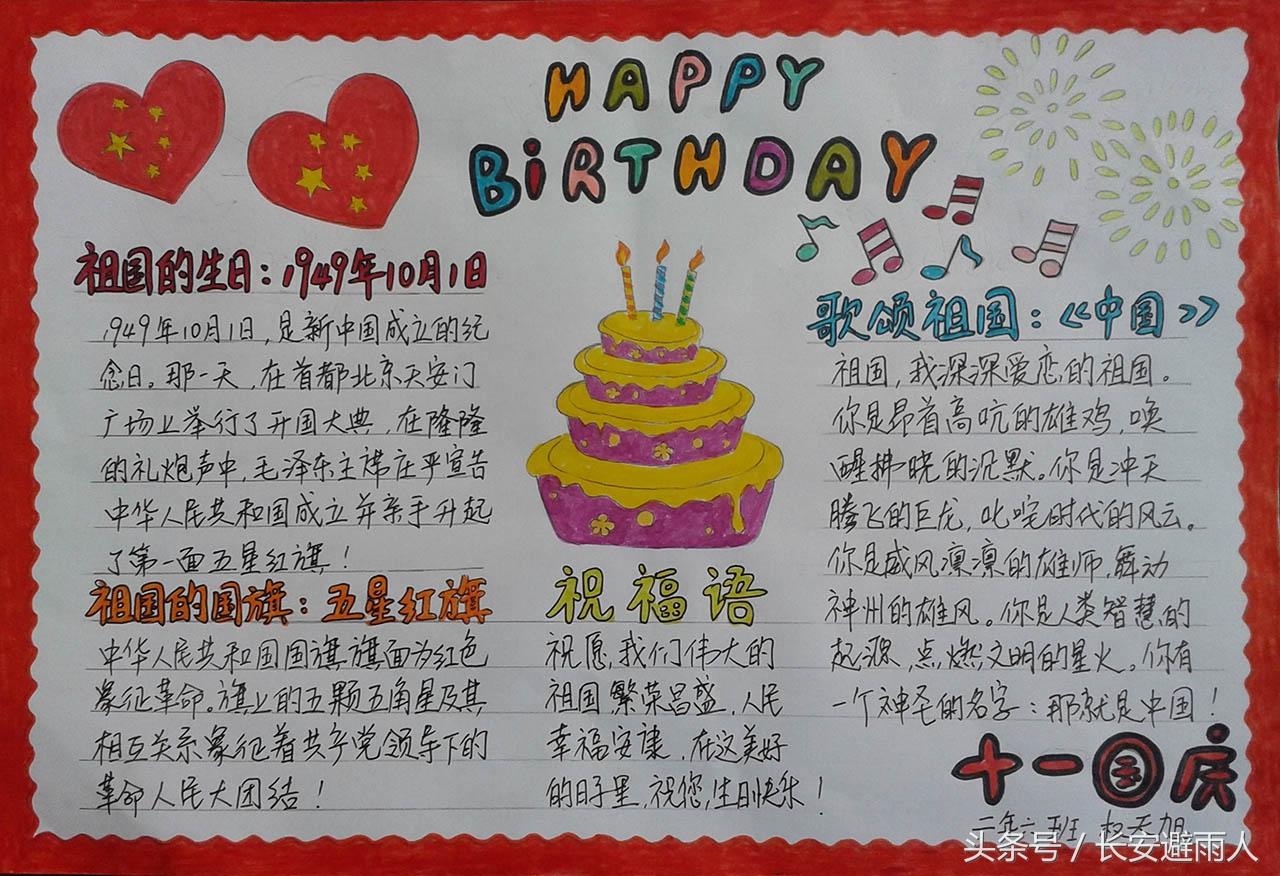 HAPPY
BiRTHDAY
祖国的生日：1949年10月1日
1949年10月1日，是新中国成立的纪
念日。那一天，在首都北京天安门
广场上举行了开国大典，在隆隆
的礼炮声中，毛泽东主席庄严宣告
中华人民共和国成立并亲手升起
了第一面五星红旗！
祖国的国旗：五星红旗
中华人民共和国国旗旗面为红色
象征革命。旗上的五颗五角星及其
相互关系象征着共产党领导下的
革命人民大团结！
祝福语
祝愿，我们伟大的
祖国繁荣昌盛，人民
幸福安康，在这美好
的日子里，祝您，生日快乐！
歌颂祖国：《中国》
祖国，我深深爱恋的祖国。
你是昂首高吭的雄鸡，唤
醒拂晓的沉默。你是冲天
腾飞的巨龙，叱咤时代的风云。
你是威风凛凛的雄师，舞动
神州的雄风。你是人类智慧的
起源，点燃文明的星火。你有
一个神圣的名字：那就是中国！
十一国庆
二年六班 赵天旭
头条号／长安避雨人